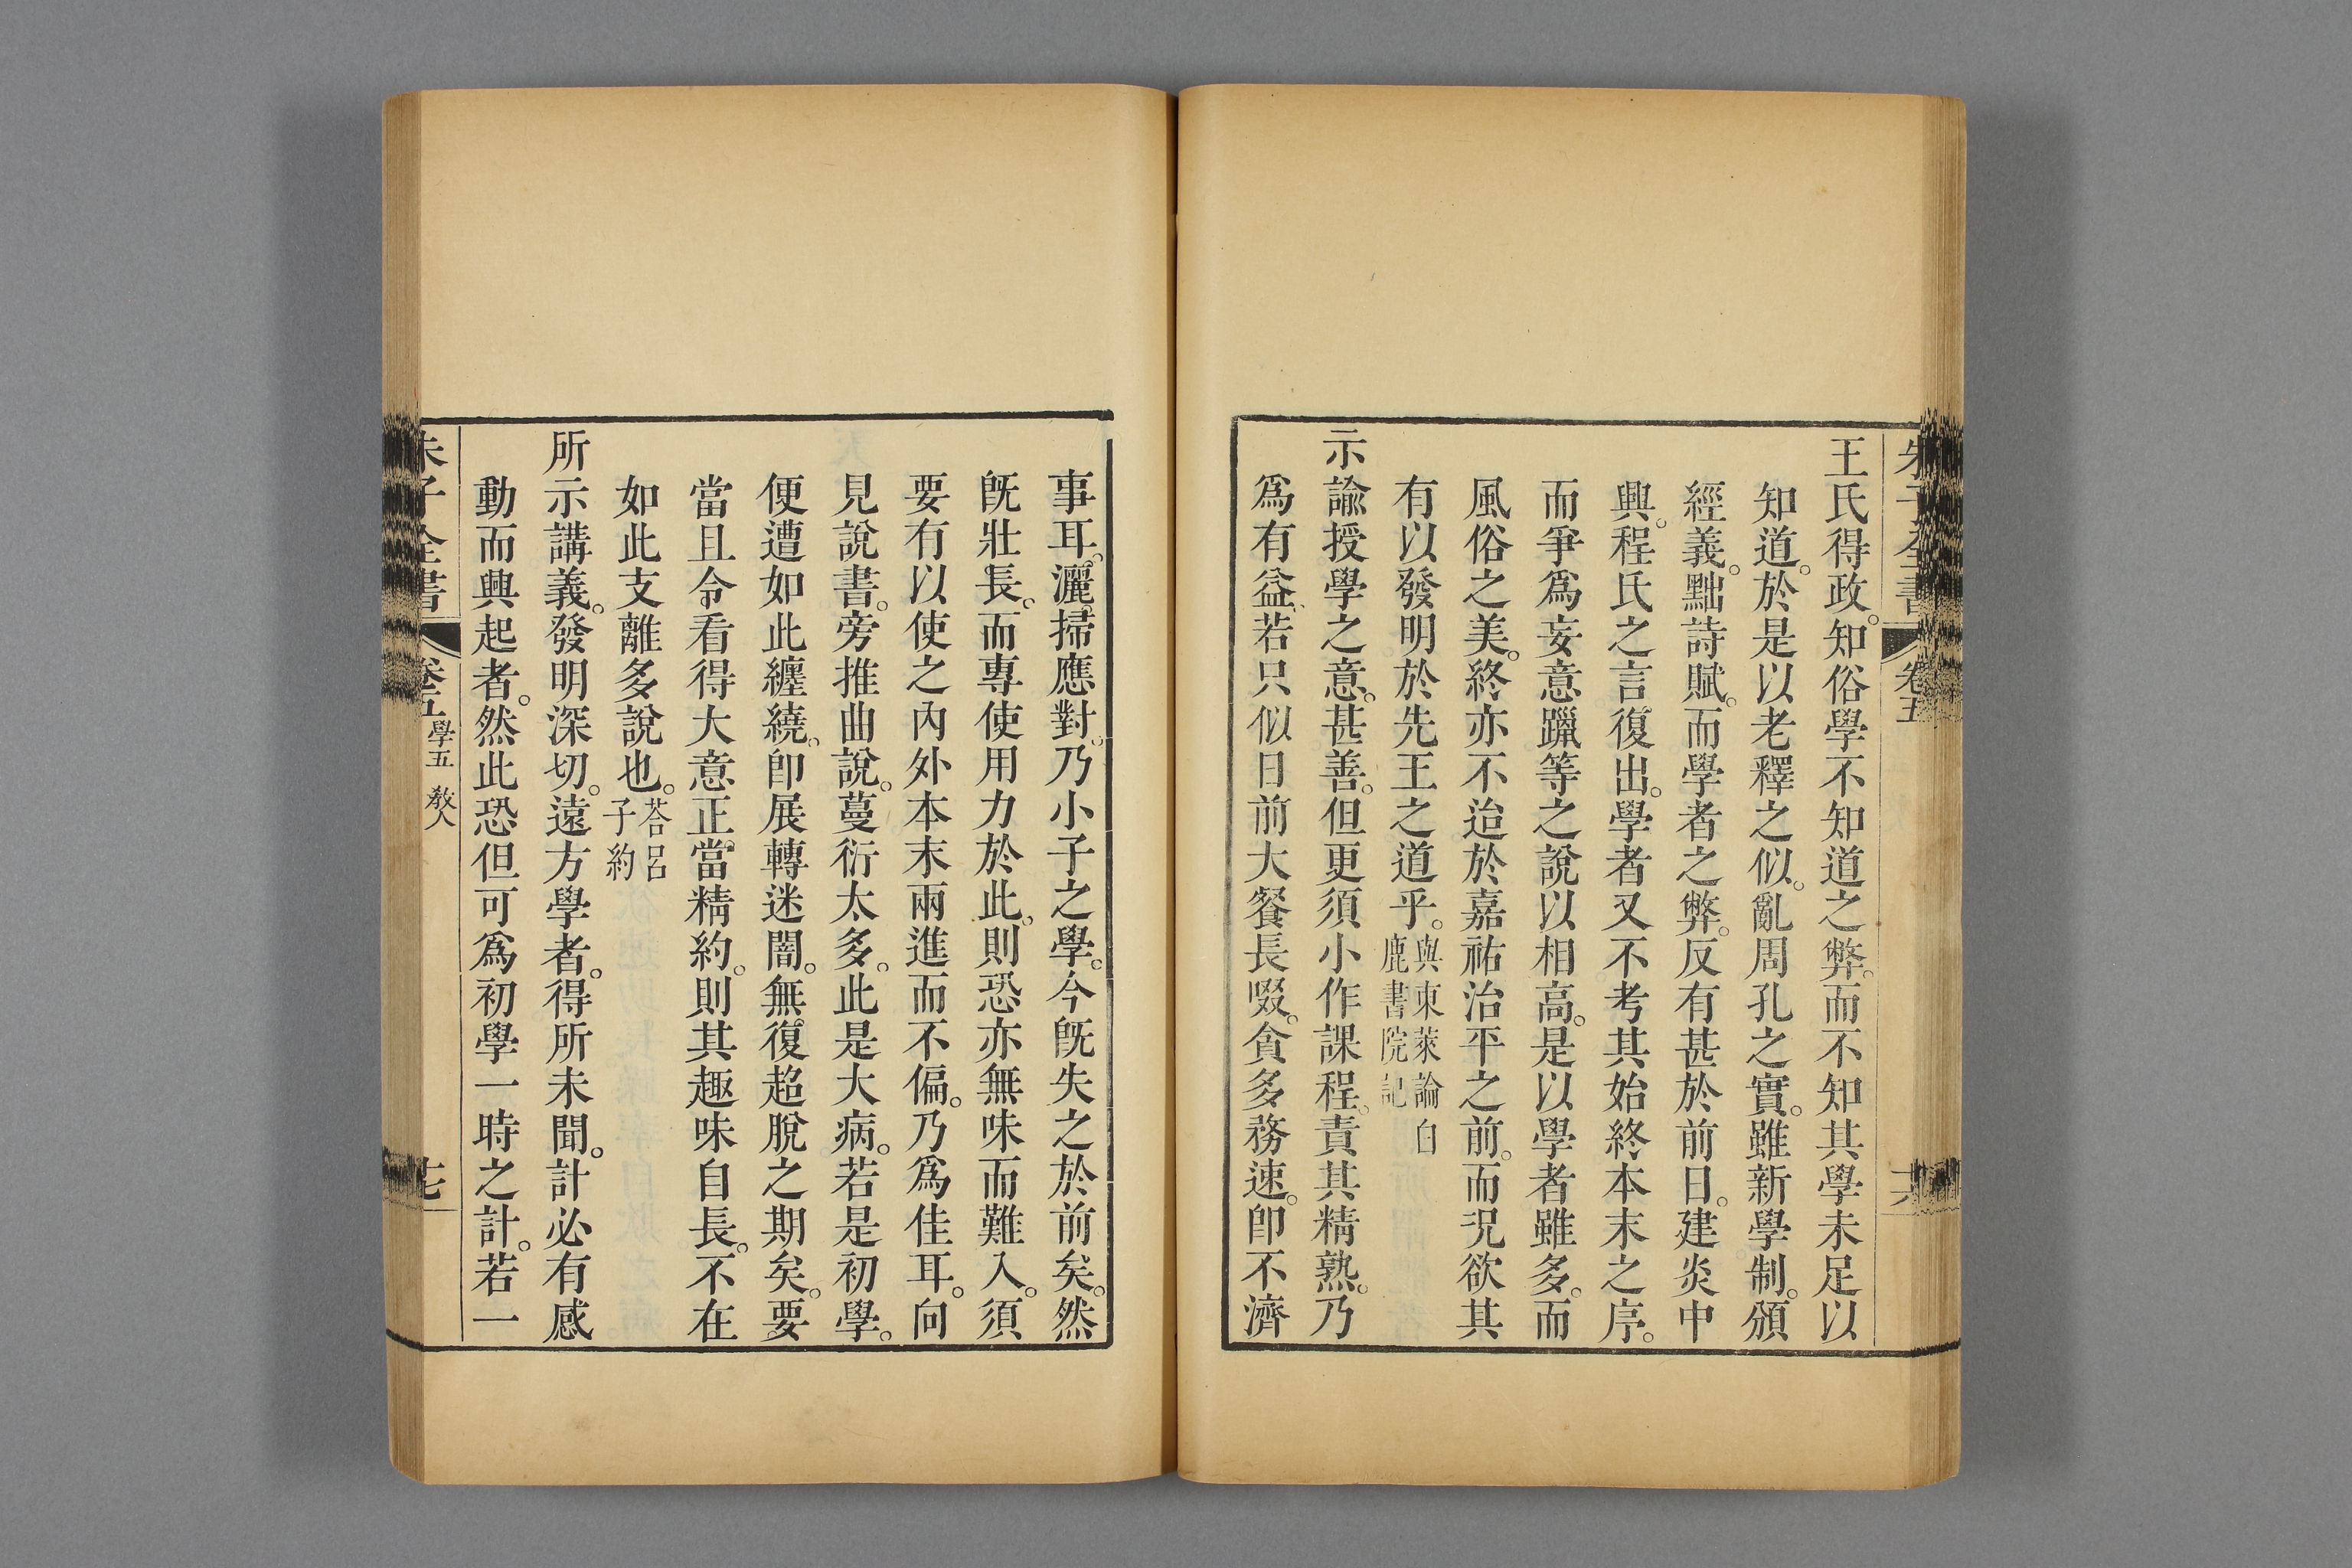 朱子全書 卷五
王氏得政。知俗學不知道之弊。而不知其學未足以
知道。於是以老釋之似。亂周孔之實。雖新學制。頒
經義。黜詩賦。而學者之弊。反有甚於前日。建炎中
興。程氏之言復出。學者又不考其始終本末之序。
而爭爲妄意躐等之說以相高。是以學者雖多。而
風俗之美。終亦不迨於嘉祐治平之前。而況欲其
有以發明於先王之道乎。與東萊論白鹿書院記
示諭授學之意。甚善。但更須小作課程。責其精熟。乃
爲有益。若只似日前大餐長啜。貪多務速。卽不濟
事耳。灑掃應對。乃小子之學。今旣失之於前矣。然
旣壯長。而專使用力於此。則恐亦無味而難入。須
要有以使之內外本末兩進而不偏。乃爲佳耳。向
見說書。旁推曲說。蔓衍太多。此是大病。若是初學。
便遭如此纏繞。卽展轉迷闇。無復超脫之期矣。要
當且令看得大意正當精約。則其趣味自長。不在
如此支離多說也。荅呂子約
所示講義。發明深切。遠方學者。得所未聞。計必有感
動而興起者。然此恐但可爲初學一時之計。若一
朱子全書 卷五 學五 敎人 七